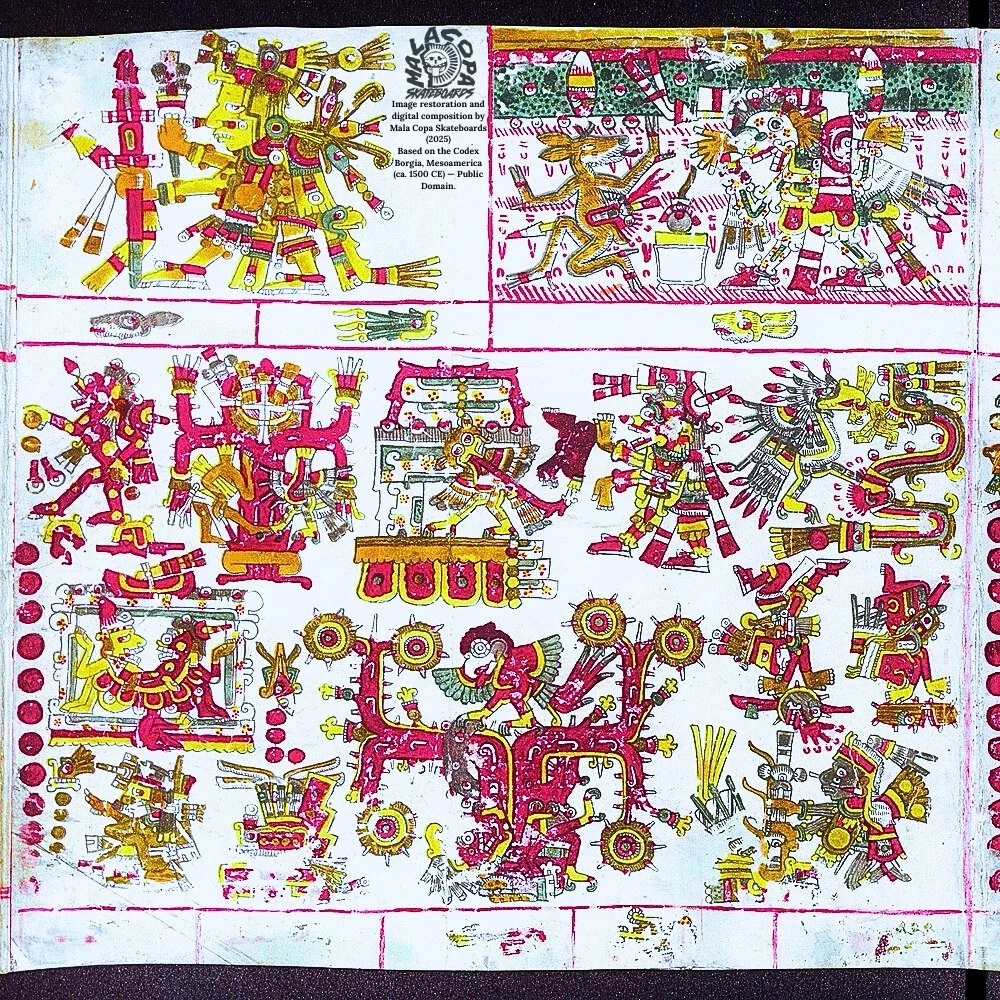 MALACOPA
SKATEBOARDS
Image restoration and
digital composition by
Mala Copa Skateboards
(2025)
Based on the Codex
Borgia, Mesoamerica
(ca. 1500 CE) — Public
Domain.